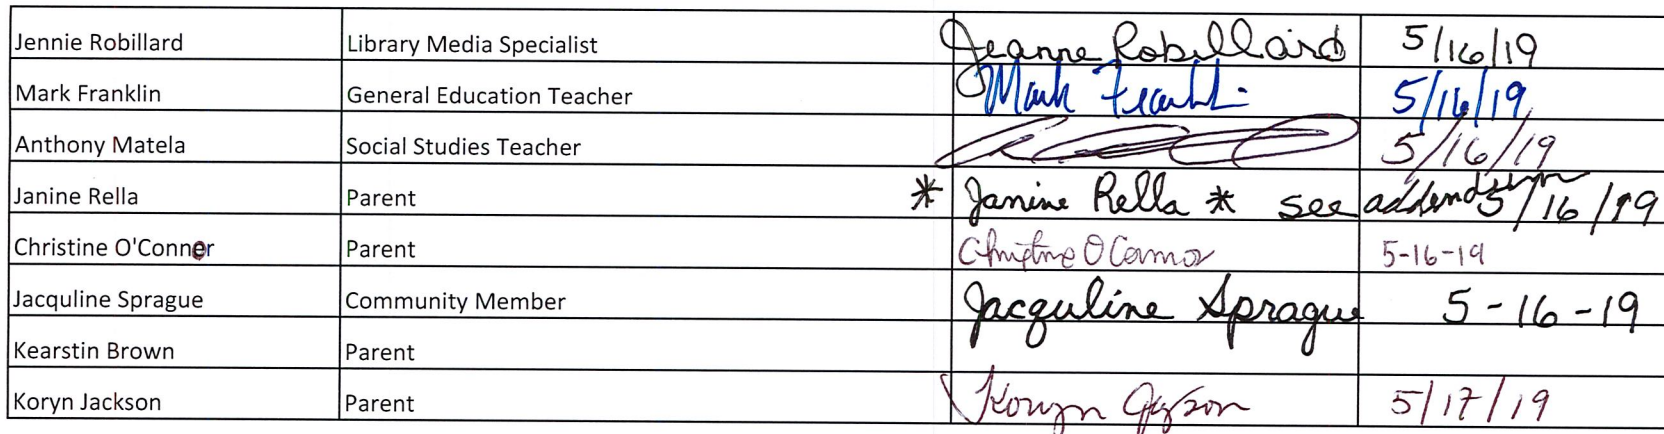 Jennie Robillard Library Media Specialist Jeanne Robillard 5/16/19
Mark Franklin General Education Teacher Mark Franklin 5/16/19
Anthony Matela Social Studies Teacher 5/16/19
Janine Rella Parent * Janine Rella * see addendum 5/16/19
Christine O'Conner Parent Christine O'Connor 5-16-19
Jacquline Sprague Community Member Jacquline Sprague 5-16-19
Kearstin Brown Parent
Koryn Jackson Parent Koryn 5/17/19